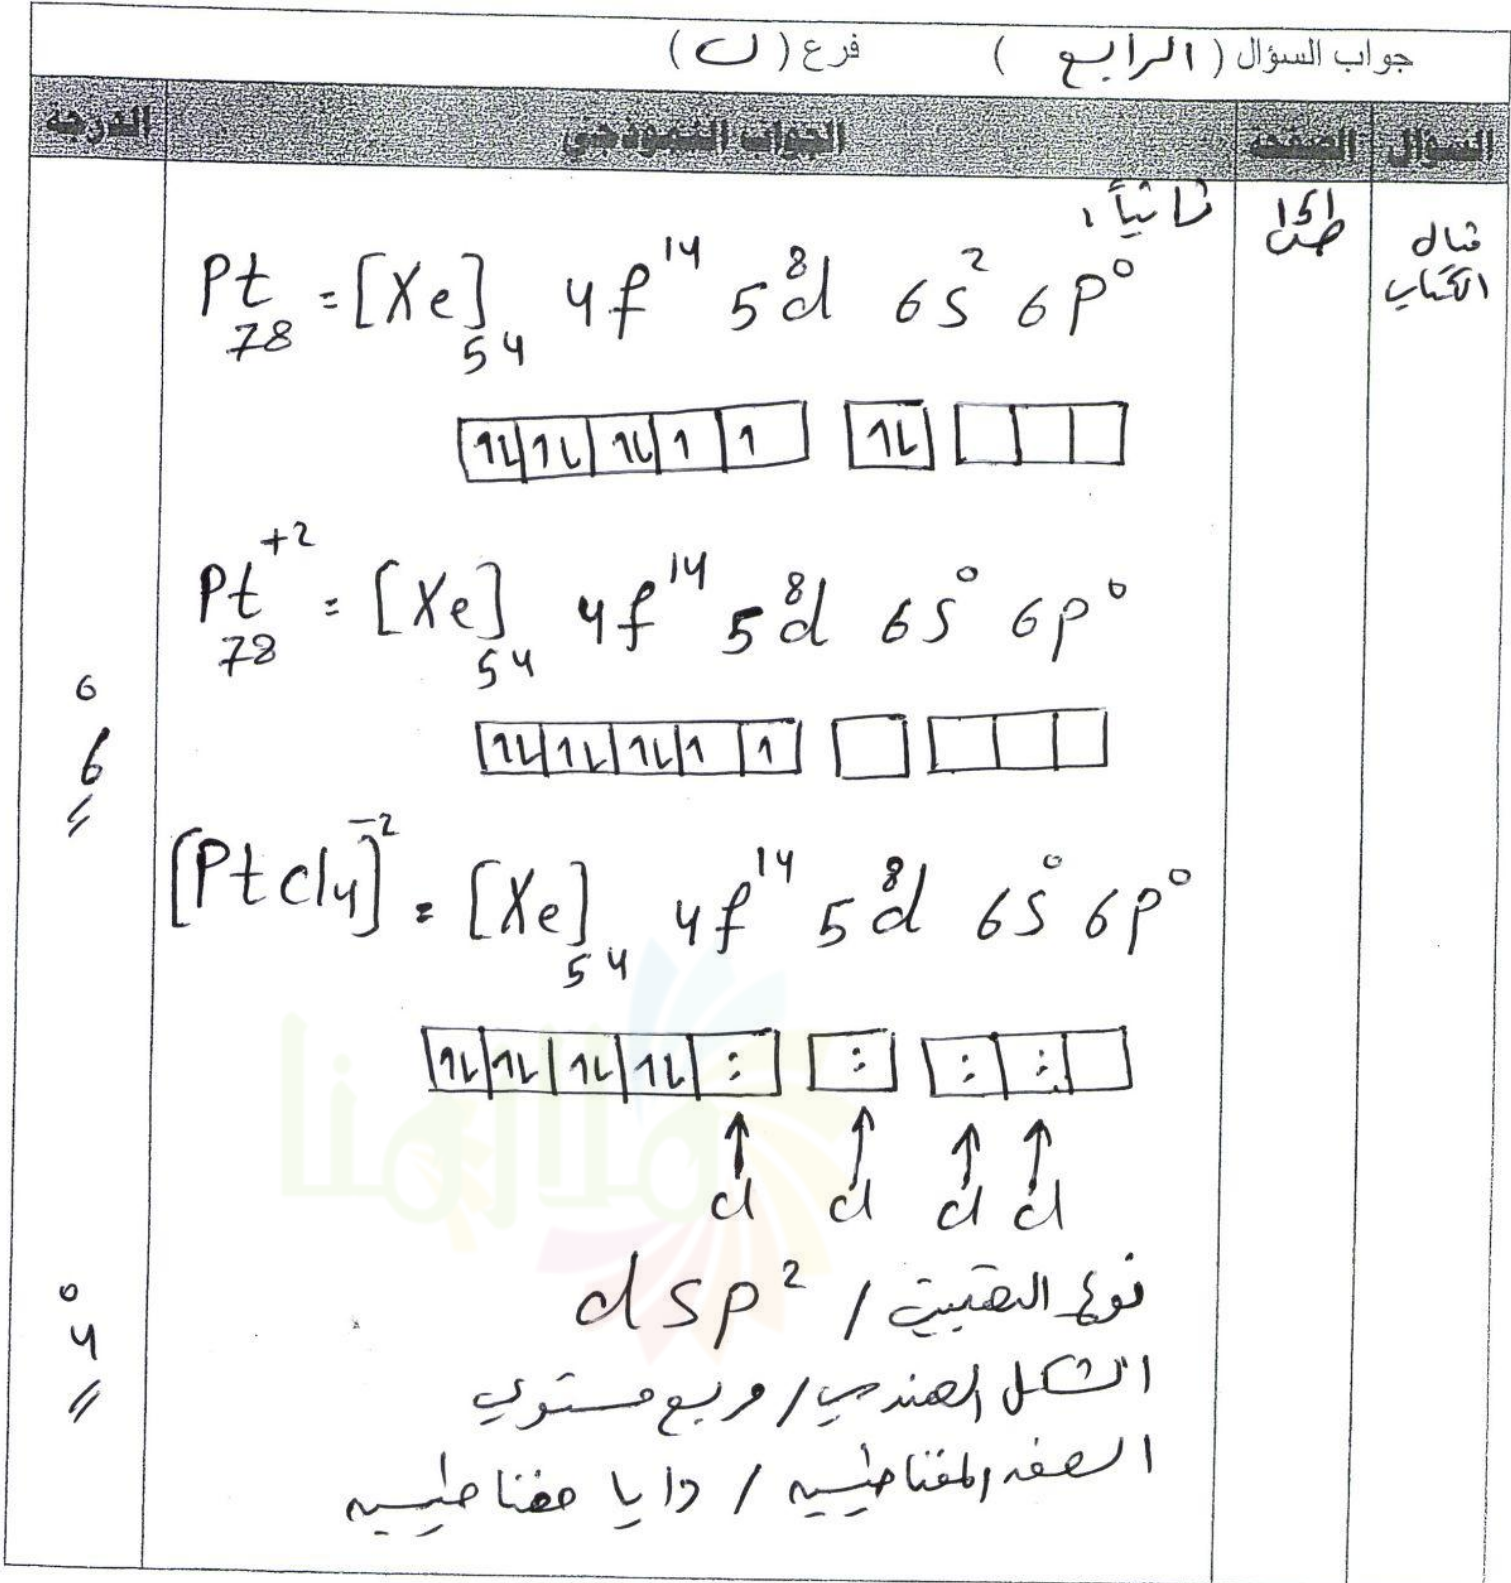 جواب السؤال ( الرابع ) فرع ( ب )
السؤال الصفحة الجواب النموذجي الدرجة
مثال الكتاب
ص 151
ثانياً :
Pt 78 = [Xe] 54 4f^14 5d^8 6s^2 6p^0
1L 1L 1L 1 1 1L
Pt^+2 78 = [Xe] 54 4f^14 5d^8 6s^0 6p^0
1L 1L 1L 1 1
6
6
[PtCl4]^-2 = [Xe] 54 4f^14 5d^8 6s^0 6p^0
1L 1L 1L 1L : : : :
↑ ↑ ↑ ↑
cl cl cl cl
نوع التهجين / dsp^2
4
الشكل الهندسي / مربع مستوي
الصفه المغناطيسيه / دايا مغناطيسيه
ملازمنا